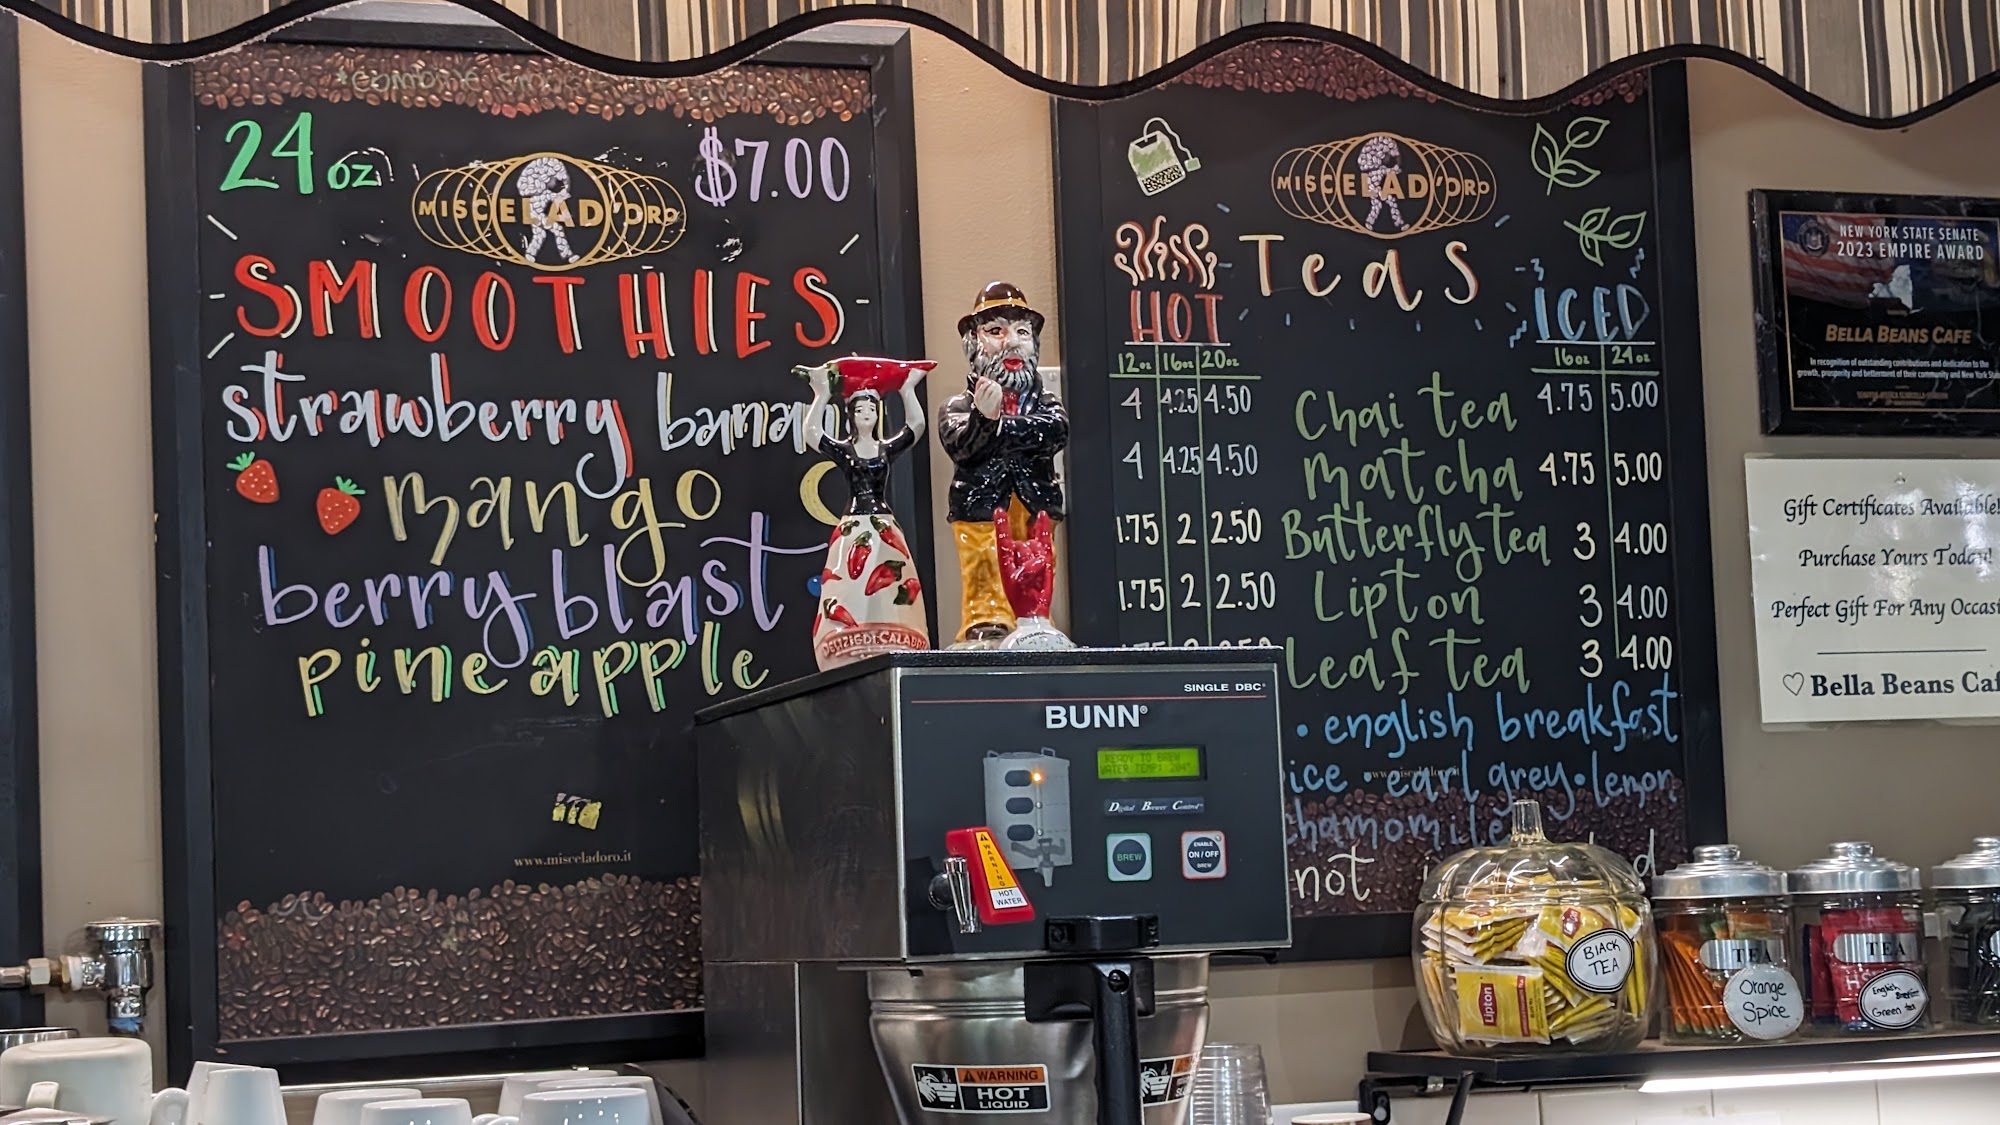 *combine
24oz
$7.00
MISCELAD'ORO
SMOOTHIES
strawberry banan
mango
berry blast
pineapple
www.misceladoro.it
MISCELAD'ORO
Teas
HOT
ICED
12oz 16oz 20oz
16oz 24oz
4 4.25 4.50 Chai tea 4.75 5.00
4 4.25 4.50 matcha 4.75 5.00
1.75 2 2.50 Butterfly tea 3 4.00
1.75 2 2.50 Lipton 3 4.00
Leaf tea 3 4.00
• english breakfast
ice • earl grey • lemon
chamomile
not
NEW YORK STATE SENATE
2023 EMPIRE AWARD
BELLA BEANS CAFE
In recognition of outstanding contributions and dedication to the
growth, prosperity and betterment of their community and New York
Gift Certificates Available!
Purchase Yours Today!
Perfect Gift For Any Occasi
♡ Bella Beans Caf
SINGLE DBC®
BUNN®
READY TO BREW
WATER TEMP: 204°
Digital Brewer Control™
BREW
ENABLE
ON / OFF
BREW
WARNING
HOT
WATER
WARNING
HOT
LIQUID
BlACK
TEA
Lipton
TEA
Orange
Spice
TEA
English Breakfast
Green tea